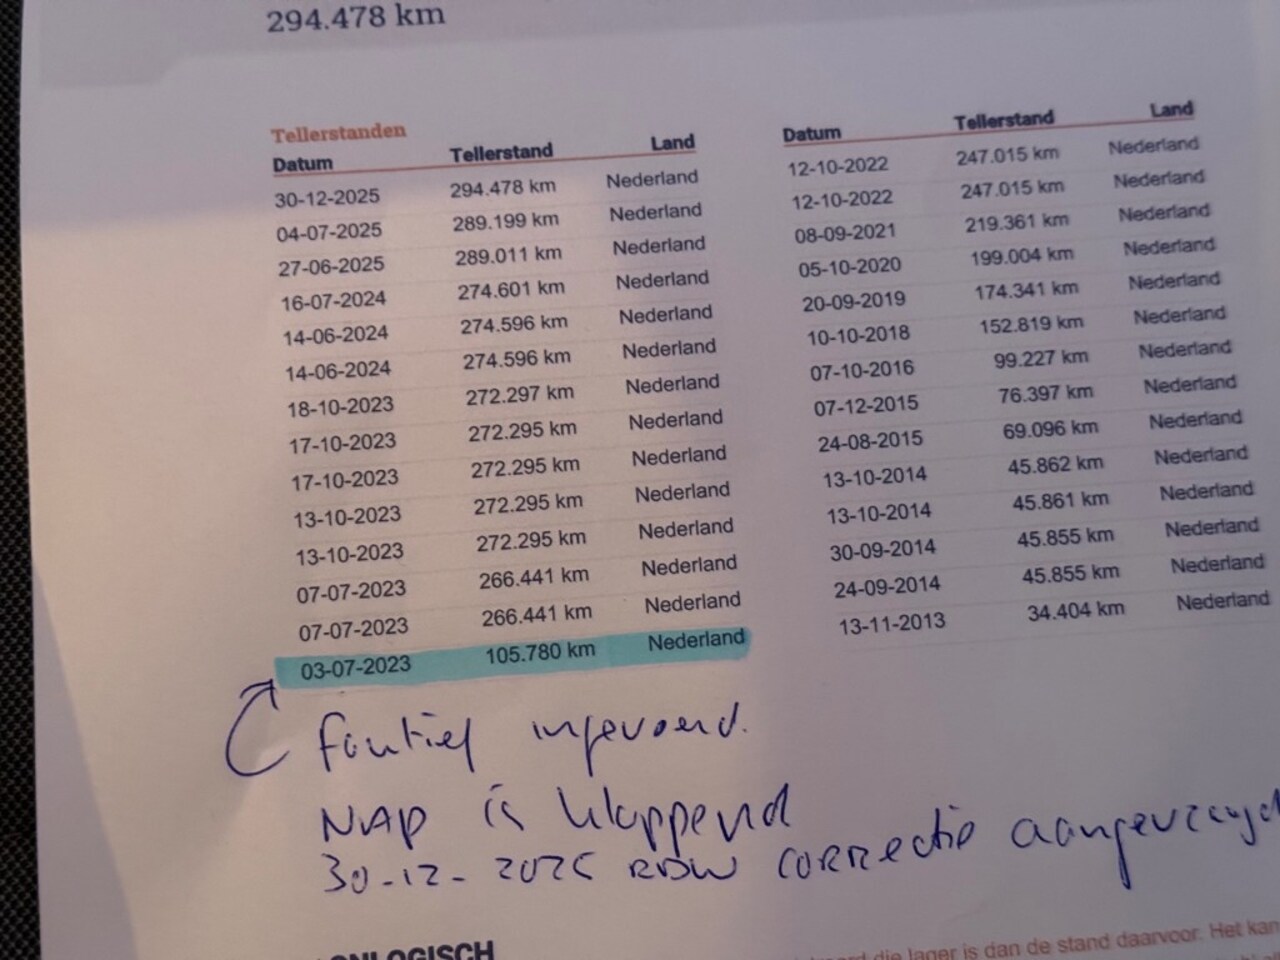 294.478 km
Tellerstanden
Datum Tellerstand Land
30-12-2025 294.478 km Nederland
04-07-2025 289.199 km Nederland
27-06-2025 289.011 km Nederland
16-07-2024 274.601 km Nederland
14-06-2024 274.596 km Nederland
14-06-2024 274.596 km Nederland
18-10-2023 272.297 km Nederland
17-10-2023 272.295 km Nederland
17-10-2023 272.295 km Nederland
13-10-2023 272.295 km Nederland
13-10-2023 272.295 km Nederland
07-07-2023 266.441 km Nederland
07-07-2023 266.441 km Nederland
03-07-2023 105.780 km Nederland
Datum Tellerstand Land
12-10-2022 247.015 km Nederland
12-10-2022 247.015 km Nederland
08-09-2021 219.361 km Nederland
05-10-2020 199.004 km Nederland
20-09-2019 174.341 km Nederland
10-10-2018 152.819 km Nederland
07-10-2016 99.227 km Nederland
07-12-2015 76.397 km Nederland
24-08-2015 69.096 km Nederland
13-10-2014 45.862 km Nederland
13-10-2014 45.861 km Nederland
30-09-2014 45.855 km Nederland
24-09-2014 45.855 km Nederland
13-11-2013 34.404 km Nederland
foutief ingevoerd.
NAP is kloppend
30-12-2025 RDW correctie aangevraagd
ONLOGISCH
die lager is dan de stand daarvoor. Het kan